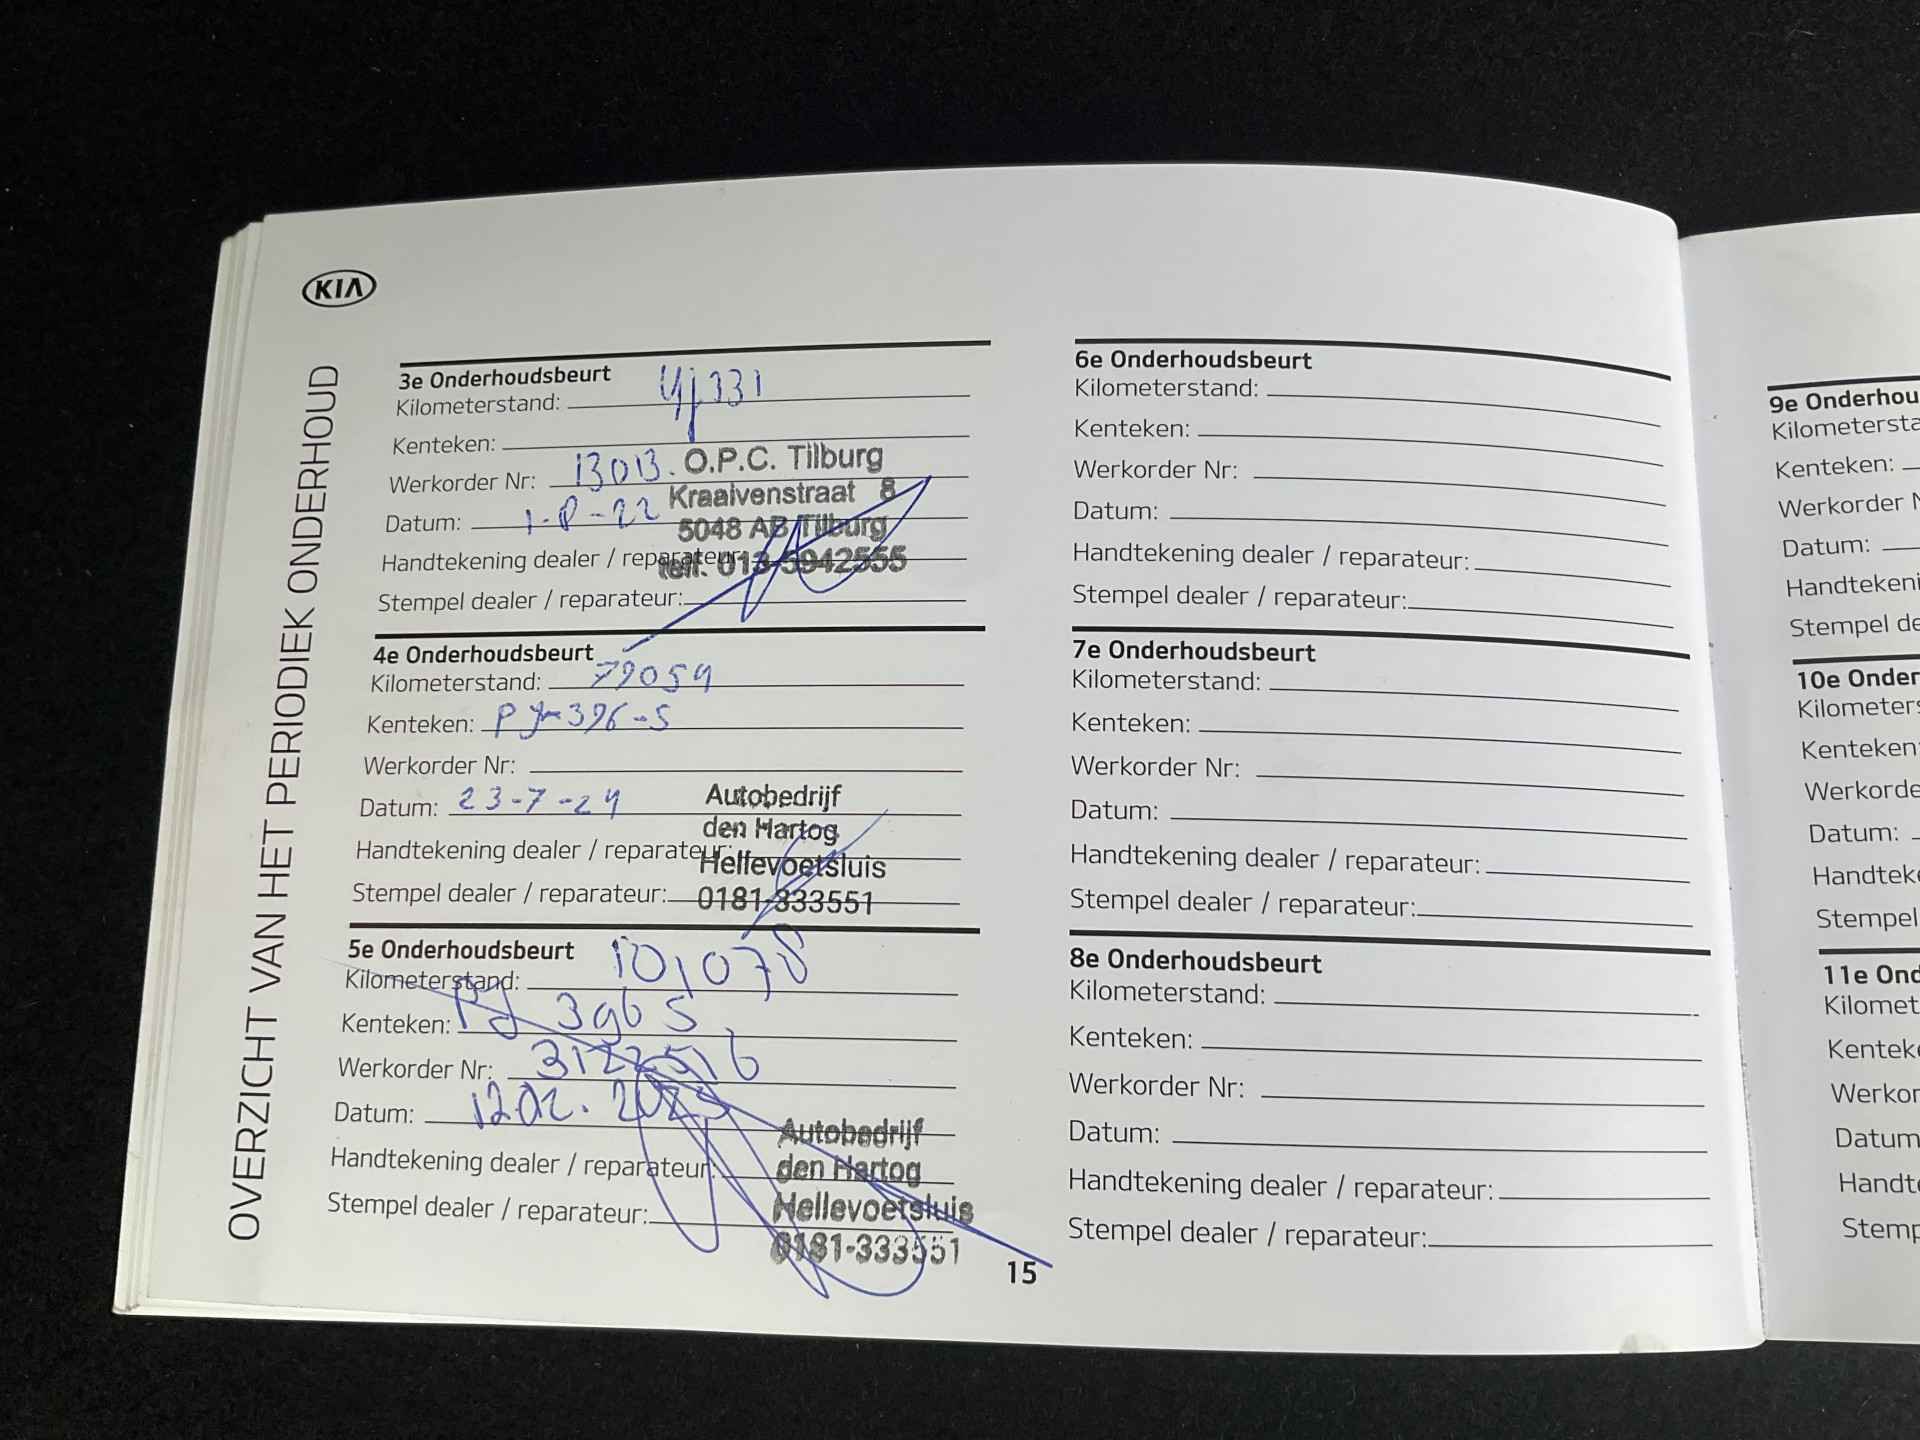 KIA
OVERZICHT VAN HET PERIODIEK ONDERHOUD
3e Onderhoudsbeurt
Kilometerstand:
Kenteken:
Werkorder Nr: 13013.
O.P.C. Tilburg
Kraaivenstraat 8
Datum: 1-8-22
5048 AB Tilburg
Handtekening dealer / reparateur:
tell. 013-5942555
Stempel dealer / reparateur:
4e Onderhoudsbeurt
Kilometerstand: 79054
Kenteken: PJ-396-S
Werkorder Nr:
Datum: 23-7-24
Autobedrijf
den Hartog
Handtekening dealer / reparateur:
Hellevoetsluis
Stempel dealer / reparateur:
0181-333551
5e Onderhoudsbeurt
Kilometerstand: 101078
Kenteken: PJ 396 S
Werkorder Nr: 3122516
Datum: 12.02.2025
Autobedrijf
den Hartog
Handtekening dealer / reparateur:
Hellevoetsluis
Stempel dealer / reparateur:
0181-333551
15
6e Onderhoudsbeurt
Kilometerstand:
Kenteken:
Werkorder Nr:
Datum:
Handtekening dealer / reparateur:
Stempel dealer / reparateur:
7e Onderhoudsbeurt
Kilometerstand:
Kenteken:
Werkorder Nr:
Datum:
Handtekening dealer / reparateur:
Stempel dealer / reparateur:
8e Onderhoudsbeurt
Kilometerstand:
Kenteken:
Werkorder Nr:
Datum:
Handtekening dealer / reparateur:
Stempel dealer / reparateur:
9e Onderhou
Kilometersta
Kenteken:
Werkorder N
Datum:
Handtekeni
Stempel de
10e Onder
Kilometers
Kenteken:
Werkorde
Datum:
Handteke
Stempel
11e Ond
Kilomet
Kentek
Werkor
Datum
Handt
Stemp